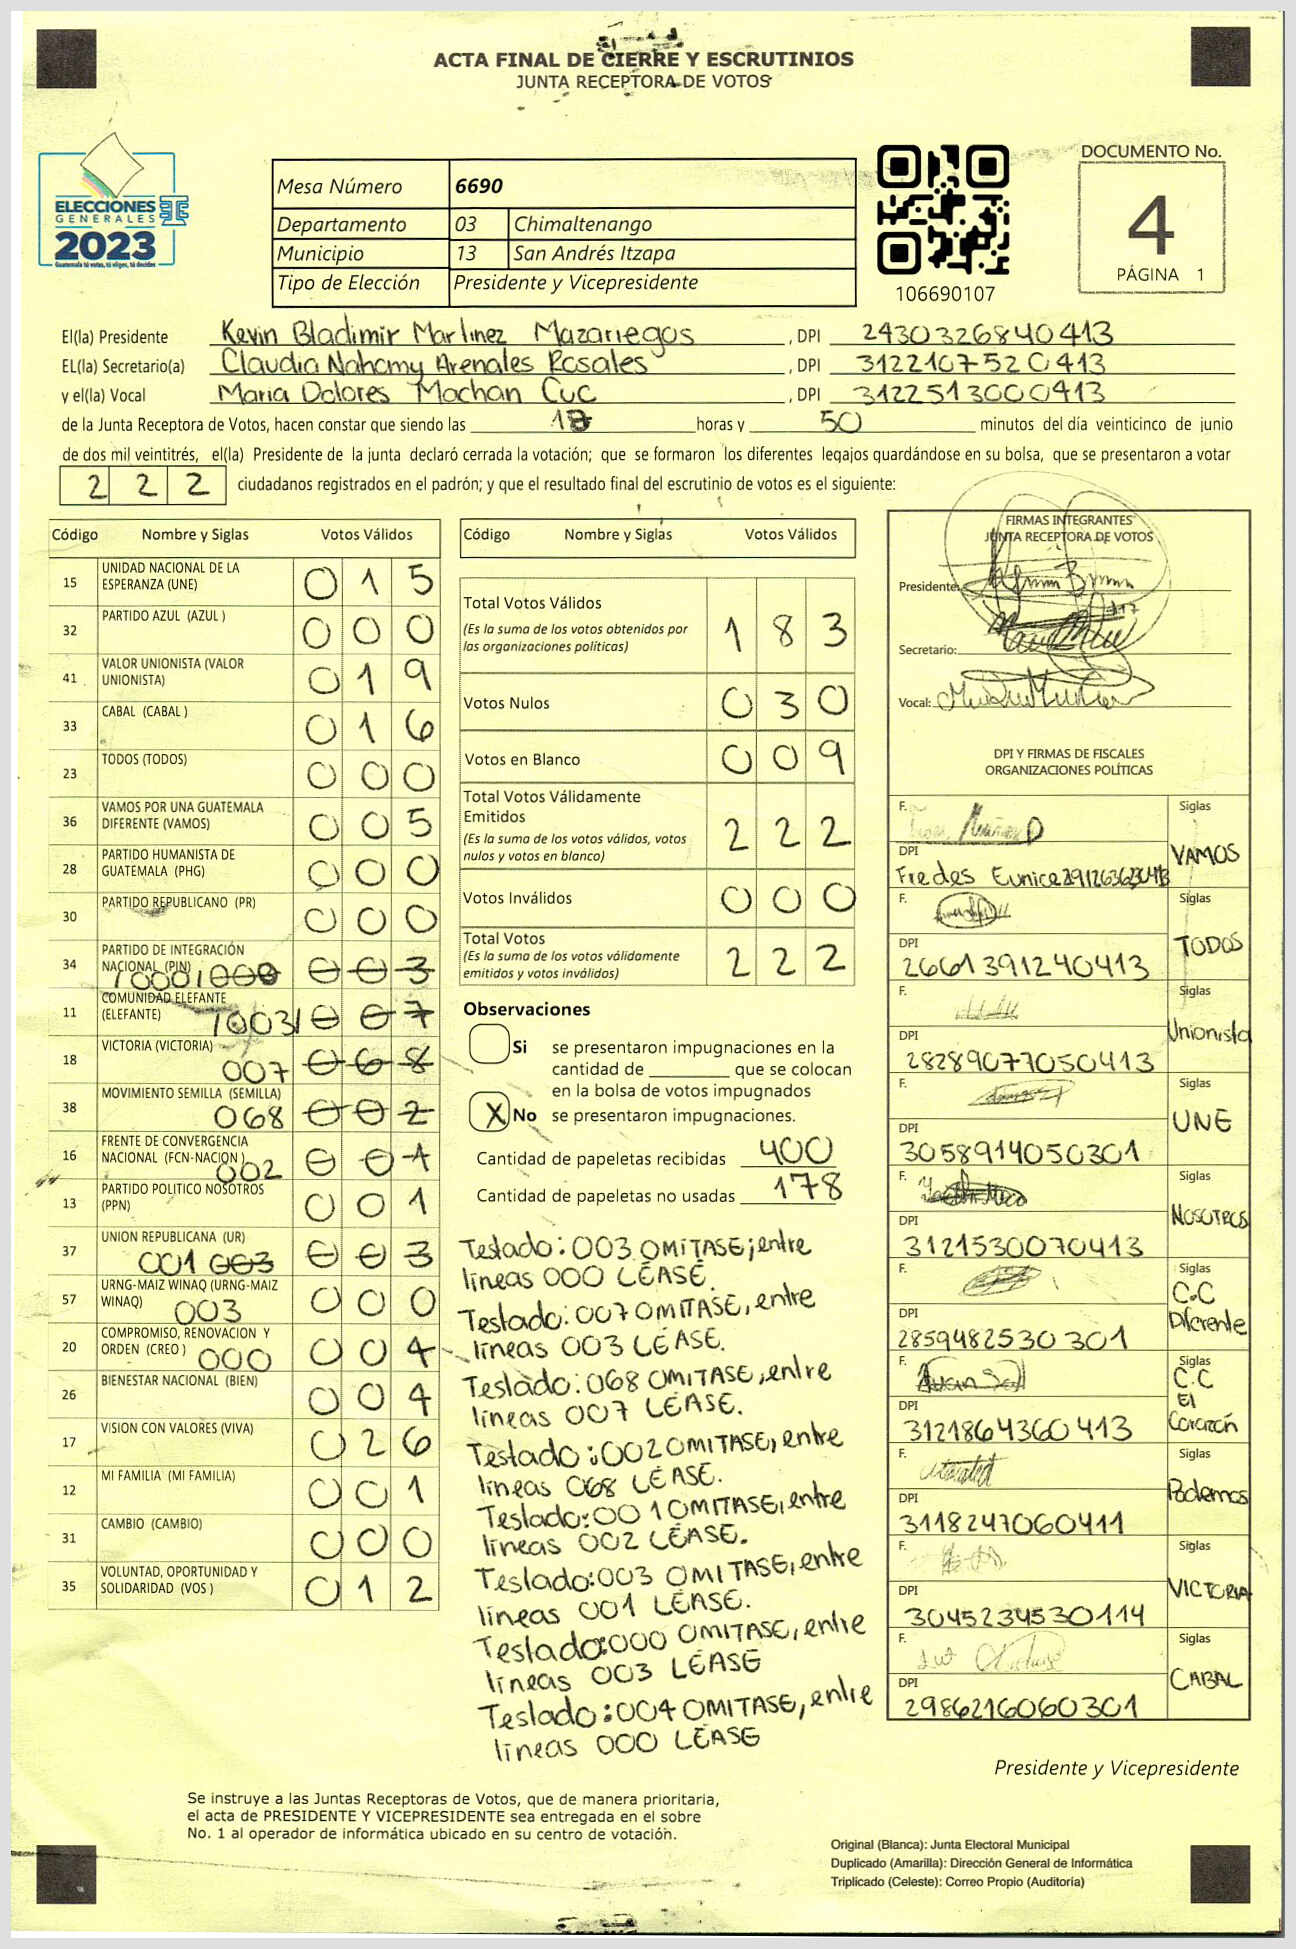 ACTA FINAL DE CIERRE Y ESCRUTINIOS
JUNTA RECEPTORA DE VOTOS
ELECCIONES
GENERALES
2023
Guatemala tú votas, tú eliges, tú decides
Mesa Número 6690
Departamento 03 Chimaltenango
Municipio 13 San Andrés Itzapa
Tipo de Elección Presidente y Vicepresidente
106690107
DOCUMENTO No.
4
PÁGINA 1
El(la) Presidente Kevin Bladimir Martinez Mazariegos , DPI 2430326840413
EL(la) Secretario(a) Claudia Nahomy Arenales Rosales , DPI 3122107520413
y el(la) Vocal Maria Dolores Machan Cuc , DPI 3122513000413
de la Junta Receptora de Votos, hacen constar que siendo las 18 horas y 50 minutos del día veinticinco de junio
de dos mil veintitrés, el(la) Presidente de la junta declaró cerrada la votación; que se formaron los diferentes legajos guardándose en su bolsa, que se presentaron a votar
222 ciudadanos registrados en el padrón; y que el resultado final del escrutinio de votos es el siguiente:
Código Nombre y Siglas Votos Válidos
15 UNIDAD NACIONAL DE LA ESPERANZA (UNE) 015
32 PARTIDO AZUL (AZUL ) 000
41 VALOR UNIONISTA (VALOR UNIONISTA) 019
33 CABAL (CABAL ) 016
23 TODOS (TODOS) 000
36 VAMOS POR UNA GUATEMALA DIFERENTE (VAMOS) 005
28 PARTIDO HUMANISTA DE GUATEMALA (PHG) 000
30 PARTIDO REPUBLICANO (PR) 000
34 PARTIDO DE INTEGRACIÓN NACIONAL (PIN) 000 003
11 COMUNIDAD ELEFANTE (ELEFANTE) 003 007
18 VICTORIA (VICTORIA) 007 068
38 MOVIMIENTO SEMILLA (SEMILLA) 068 002
16 FRENTE DE CONVERGENCIA NACIONAL (FCN-NACION ) 002 001
13 PARTIDO POLITICO NOSOTROS (PPN) 001
37 UNION REPUBLICANA (UR) 001 003 003
57 URNG-MAIZ WINAQ (URNG-MAIZ WINAQ) 003 000
20 COMPROMISO, RENOVACION Y ORDEN (CREO ) 000 004
26 BIENESTAR NACIONAL (BIEN) 004
17 VISION CON VALORES (VIVA) 026
12 MI FAMILIA (MI FAMILIA) 001
31 CAMBIO (CAMBIO) 000
35 VOLUNTAD, OPORTUNIDAD Y SOLIDARIDAD (VOS ) 012
Código Nombre y Siglas Votos Válidos
Total Votos Válidos 183
(Es la suma de los votos obtenidos por
las organizaciones políticas)
Votos Nulos 030
Votos en Blanco 009
Total Votos Válidamente
Emitidos 222
(Es la suma de los votos válidos, votos
nulos y votos en blanco)
Votos Inválidos 000
Total Votos 222
(Es la suma de los votos válidamente
emitidos y votos inválidos)
Observaciones
Si se presentaron impugnaciones en la
cantidad de ________ que se colocan
en la bolsa de votos impugnados
X No se presentaron impugnaciones.
Cantidad de papeletas recibidas 400
Cantidad de papeletas no usadas 178
Testado: 003 OMITASE; entre
líneas 000 LÉASE.
Testado: 007 OMITASE, entre
líneas 003 LÉASE.
Testado: 068 OMITASE, entre
líneas 007 LÉASE.
Testado: 002 OMITASE, entre
líneas 068 LÉASE.
Testado: 001 OMITASE, entre
líneas 002 LÉASE.
Testado: 003 OMITASE, entre
líneas 001 LÉASE.
Testado: 000 OMITASE, entre
líneas 003 LÉASE
Testado: 004 OMITASE, entre
líneas 000 LÉASE
FIRMAS INTEGRANTES
JUNTA RECEPTORA DE VOTOS
Presidente:
Secretario:
Vocal:
DPI Y FIRMAS DE FISCALES
ORGANIZACIONES POLÍTICAS
F. Siglas
DPI VAMOS
Fredes Eunice
F. Siglas
DPI TODOS
2661391240413
F. Siglas
DPI Unionista
28289077050413
F. Siglas
DPI UNE
3058914050301
F. Siglas
DPI NOSOTROS
3121530070413
F. Siglas
C.C
DPI Diferente
2859482530301
F. Siglas
C.C
El
DPI Corazón
3121864360413
F. Siglas
DPI Podemos
3118247060411
F. Siglas
DPI VICTORIA
3045234530114
F. Siglas
DPI CABAL
2986216060301
Presidente y Vicepresidente
Se instruye a las Juntas Receptoras de Votos, que de manera prioritaria,
el acta de PRESIDENTE Y VICEPRESIDENTE sea entregada en el sobre
No. 1 al operador de informática ubicado en su centro de votación.
Original (Blanca): Junta Electoral Municipal
Duplicado (Amarilla): Dirección General de Informática
Triplicado (Celeste): Correo Propio (Auditoría)